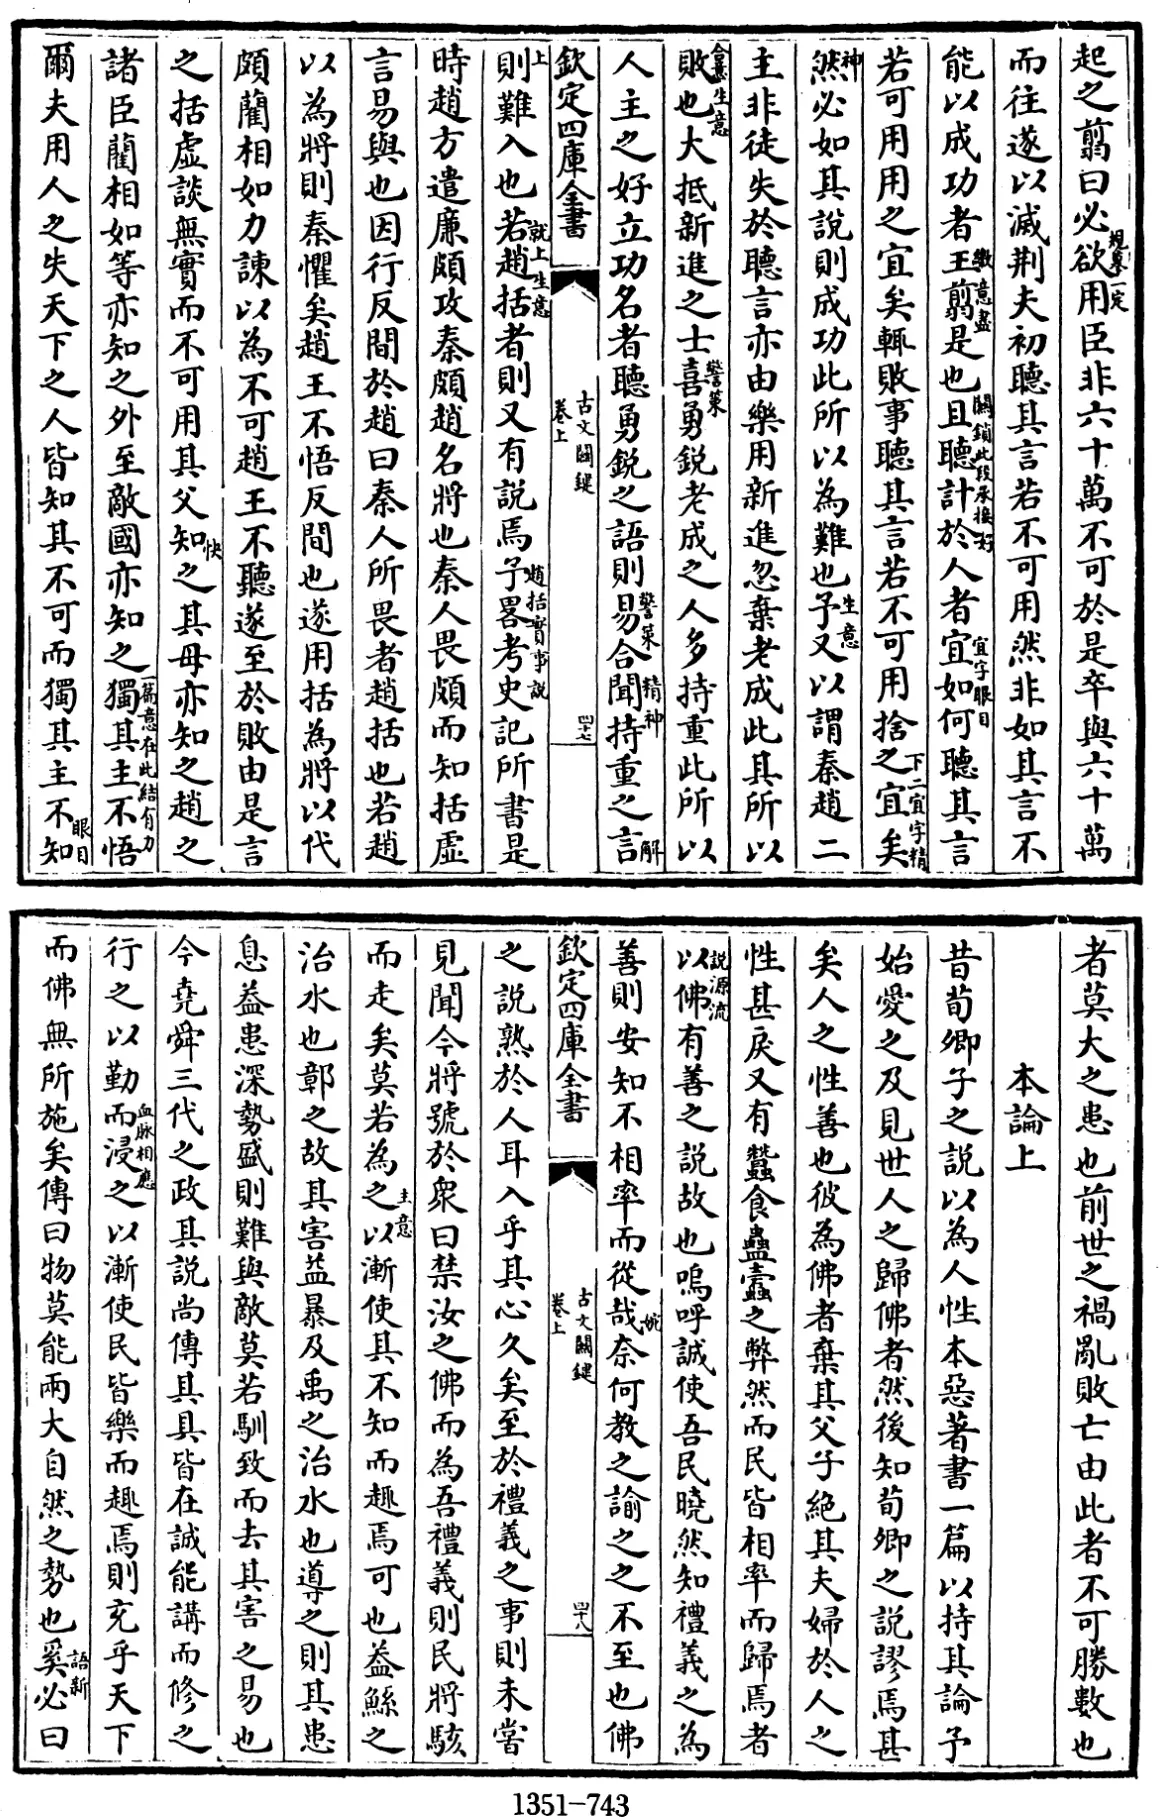 起之翦曰必欲用臣非六十萬不可於是卒與六十萬
一定
而往遂以滅荆夫初聽其言若不可用然非如其言不
能以成功者王翦是也且聽計於人者宜如何聽其言
繳意盡
關鎖此段承接好
宜字眼目
若可用用之宜矣輒敗事聽其言若不可用捨之宜矣
下二宜字精
然必如其說則成功此所以為難也予又以謂秦趙二
神
生意
主非徒失於聽言亦由樂用新進忽棄老成此其所以
敗也大抵新進之士喜勇銳老成之人多持重此所以
生意
警策
人主之好立功名者聽勇銳之語則易合聞持重之言
警策
精神
解
欽定四庫全書
古文關鍵
卷上
四十七
則難入也若趙括者則又有說焉予畧考史記所書是
上
就上生意
趙括實事說
時趙方遣廉頗攻秦頗趙名將也秦人畏頗而知括虛
言易與也因行反間於趙曰秦人所畏者趙括也若趙
以為將則秦懼矣趙王不悟反間也遂用括為將以代
頗藺相如力諫以為不可趙王不聽遂至於敗由是言
之括虛談無實而不可用其父知之其母亦知之趙之
快
諸臣藺相如等亦知之外至敵國亦知之獨其主不悟
一篇意在此結有力
爾夫用人之失天下之人皆知其不可而獨其主不知
眼目
者莫大之患也前世之禍亂敗亡由此者不可勝數也
本論上
昔荀卿子之說以為人性本惡著書一篇以持其論予
始愛之及見世人之歸佛者然後知荀卿之說謬焉甚
矣人之性善也彼為佛者棄其父子絕其夫婦於人之
性甚戾又有蠶食蟲蠹之弊然而民皆相率而歸焉者
以佛有善之說故也嗚呼誠使吾民曉然知禮義之為
說源流
善則安知不相率而從哉奈何教之諭之之不至也佛
婉
欽定四庫全書
古文關鍵
卷上
四十八
之說熟於人耳入乎其心久矣至於禮義之事則未嘗
見聞今將號於衆曰禁汝之佛而為吾禮義則民將駭
而走矣莫若為之以漸使其不知而趣焉可也蓋鯀之
主意
治水也鄣之故其害益暴及禹之治水也導之則其患
息蓋患深勢盛則難與敵莫若馴致而去其害之易也
今堯舜三代之政其說尚傳其具皆在誠能講而修之
行之以勤而浸之以漸使民皆樂而趣焉則充乎天下
血脉相應
而佛無所施矣傳曰物莫能兩大自然之勢也奚必曰
語新
1351-743